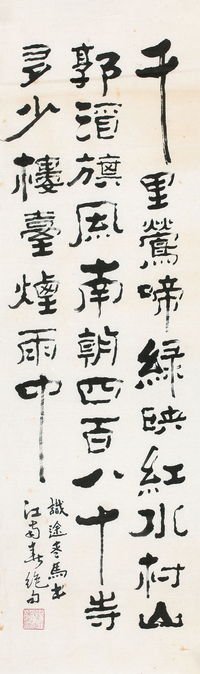 千里鶯啼緑映紅水村山
郭酒旗風南朝四百八十寺
多少樓臺煙雨中
識途老馬書
江南春絕句